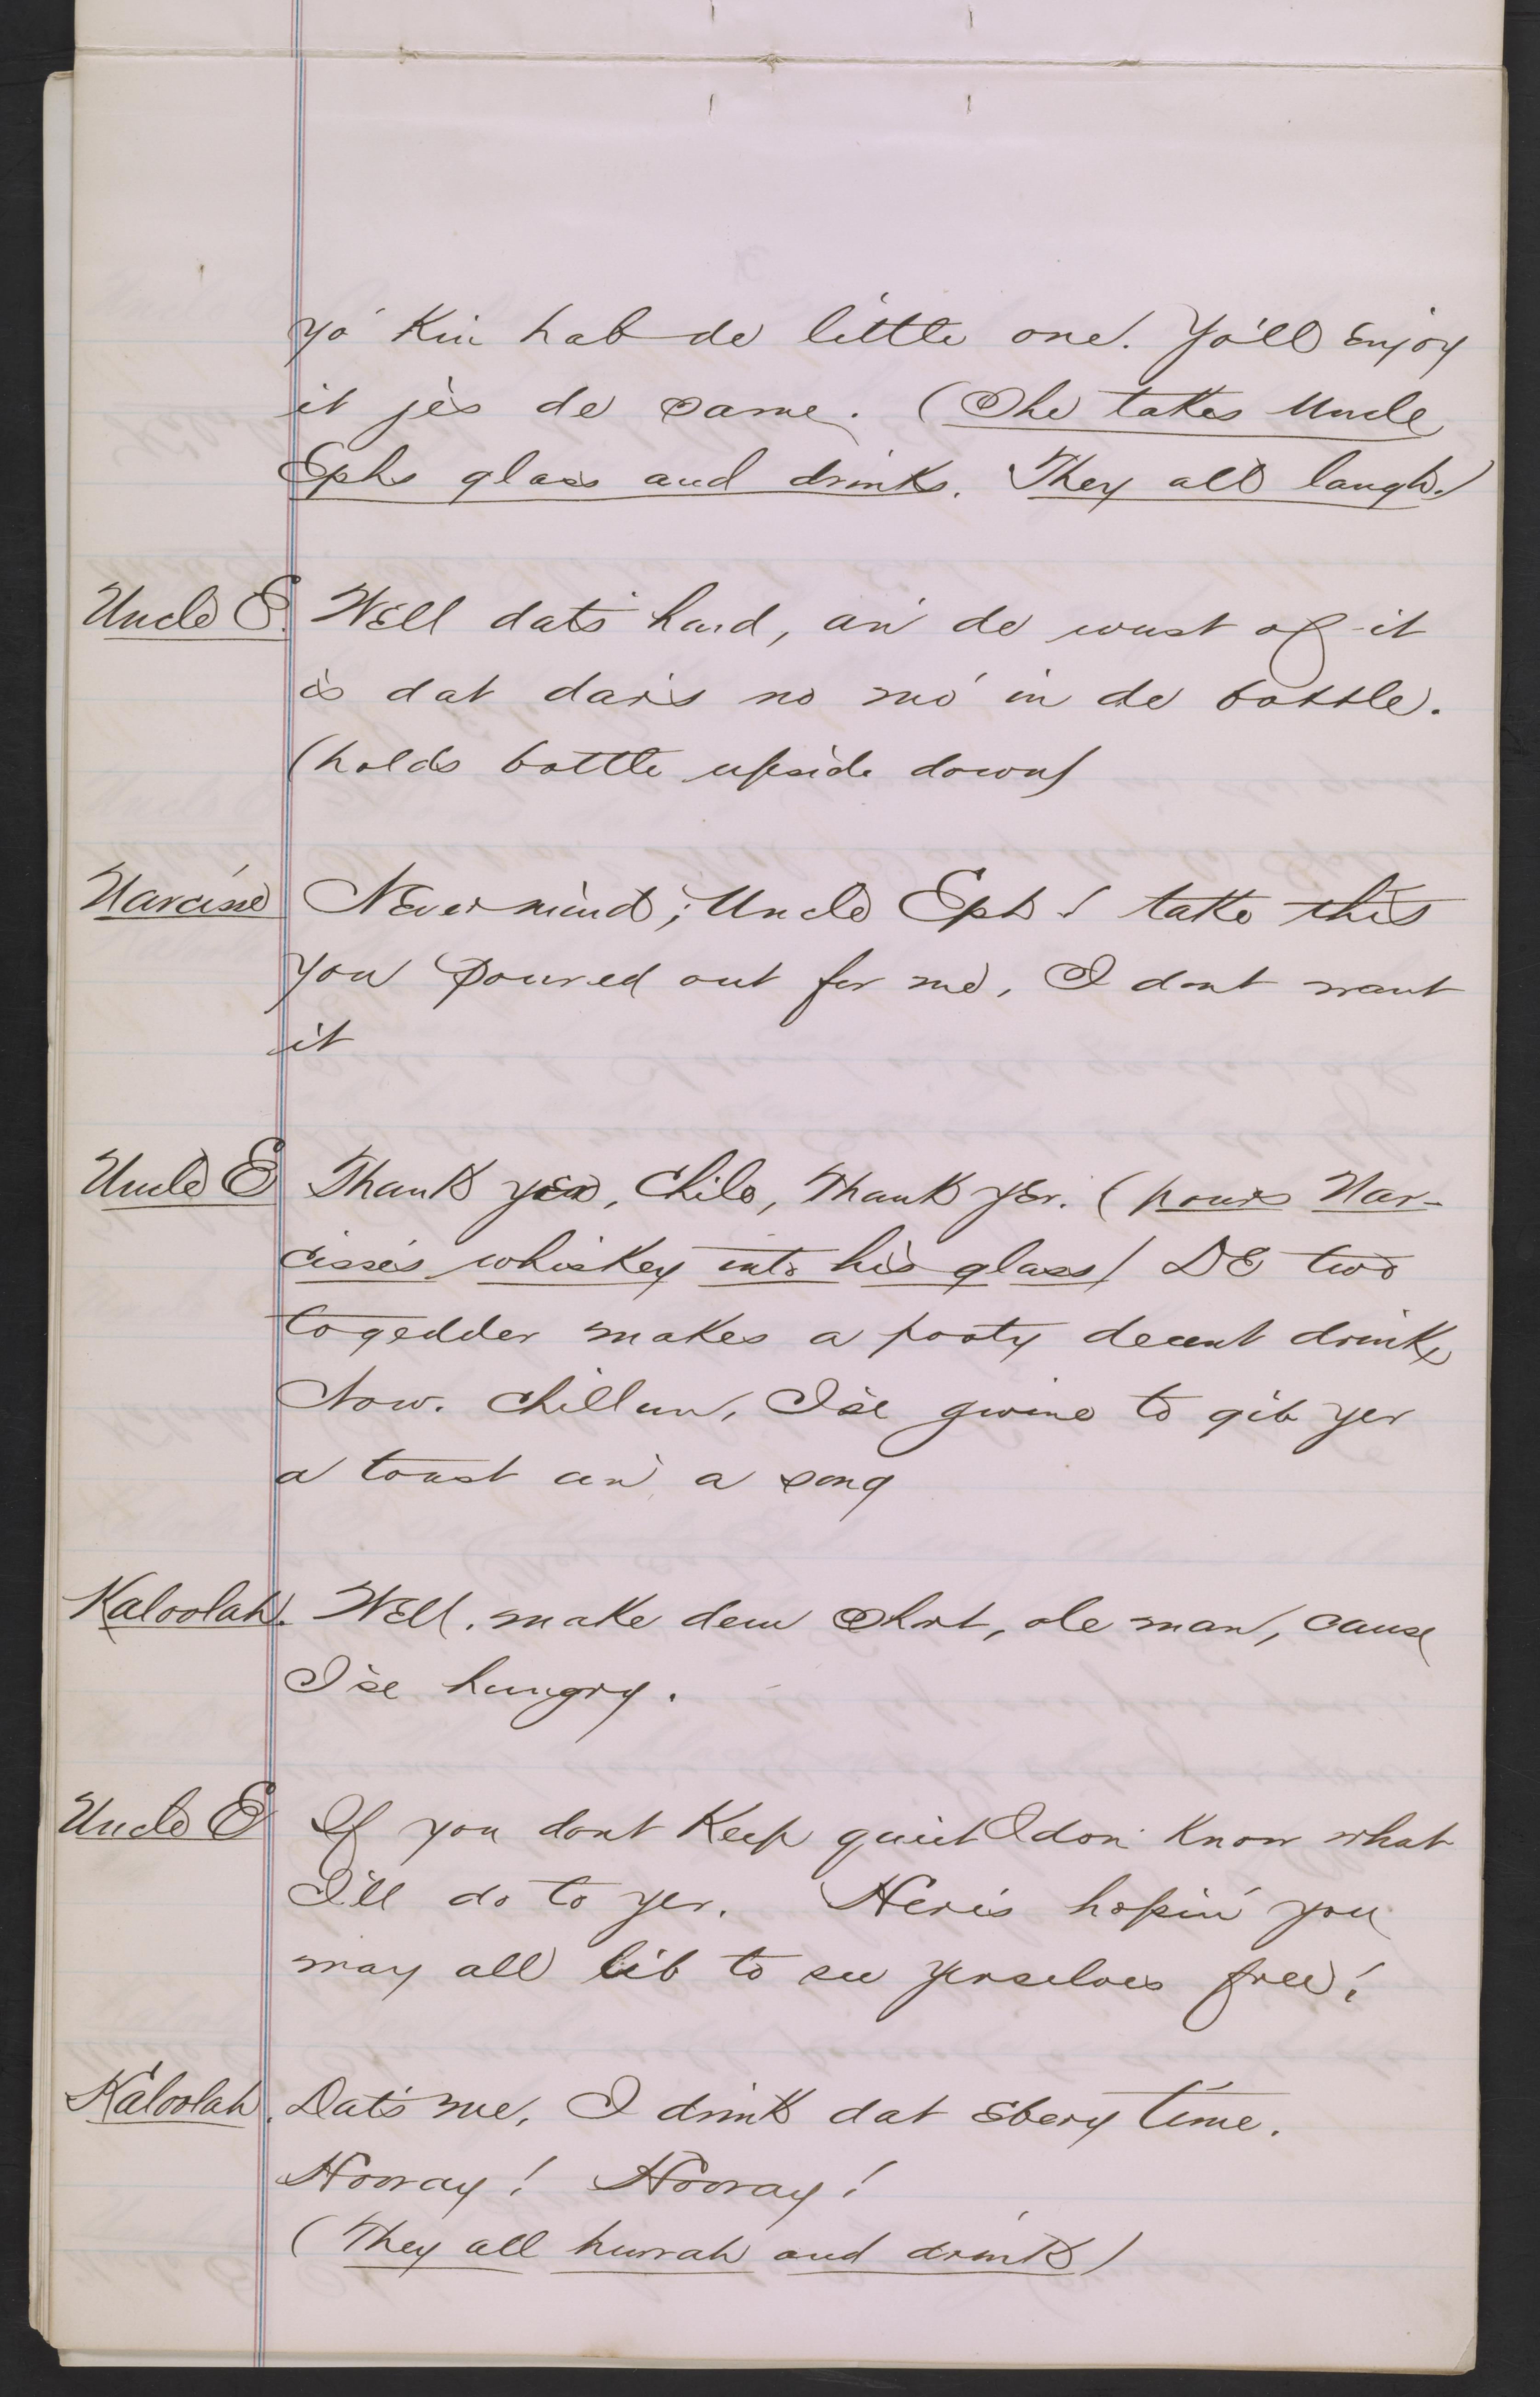 yo' kin hab de little one. Yo'll enjoy
it jes de same. (She takes Uncle
Ephs glass and drinks. They all laugh.)
Uncle E. Well dat's hard, an' de wust of it
is dat dar's no mo' in de bottle.
(holds bottle upside down)
Narcisse Never mind, Uncle Eph! take this
you poured out for me, I dont want
it
Uncle E Thank yer, Chile, Thank yer. (pours Nar-
cisse's whiskey into his glass) De two
togedder makes a pooty decent drink
Now. Chillun, I'se gwine to gib yer
a toast an' a song
Kaloolah. Well. make dem short, ole man, cause
I'se hungry.
Uncle E If you dont keep quiet I don' know what
I'll do to yer. Here's hopin' you
may all lib to see yerselves free!
Kaloolah. Dat's me, I drink dat ebery time.
Hooray! Hooray!
(They all hurrah and drink)